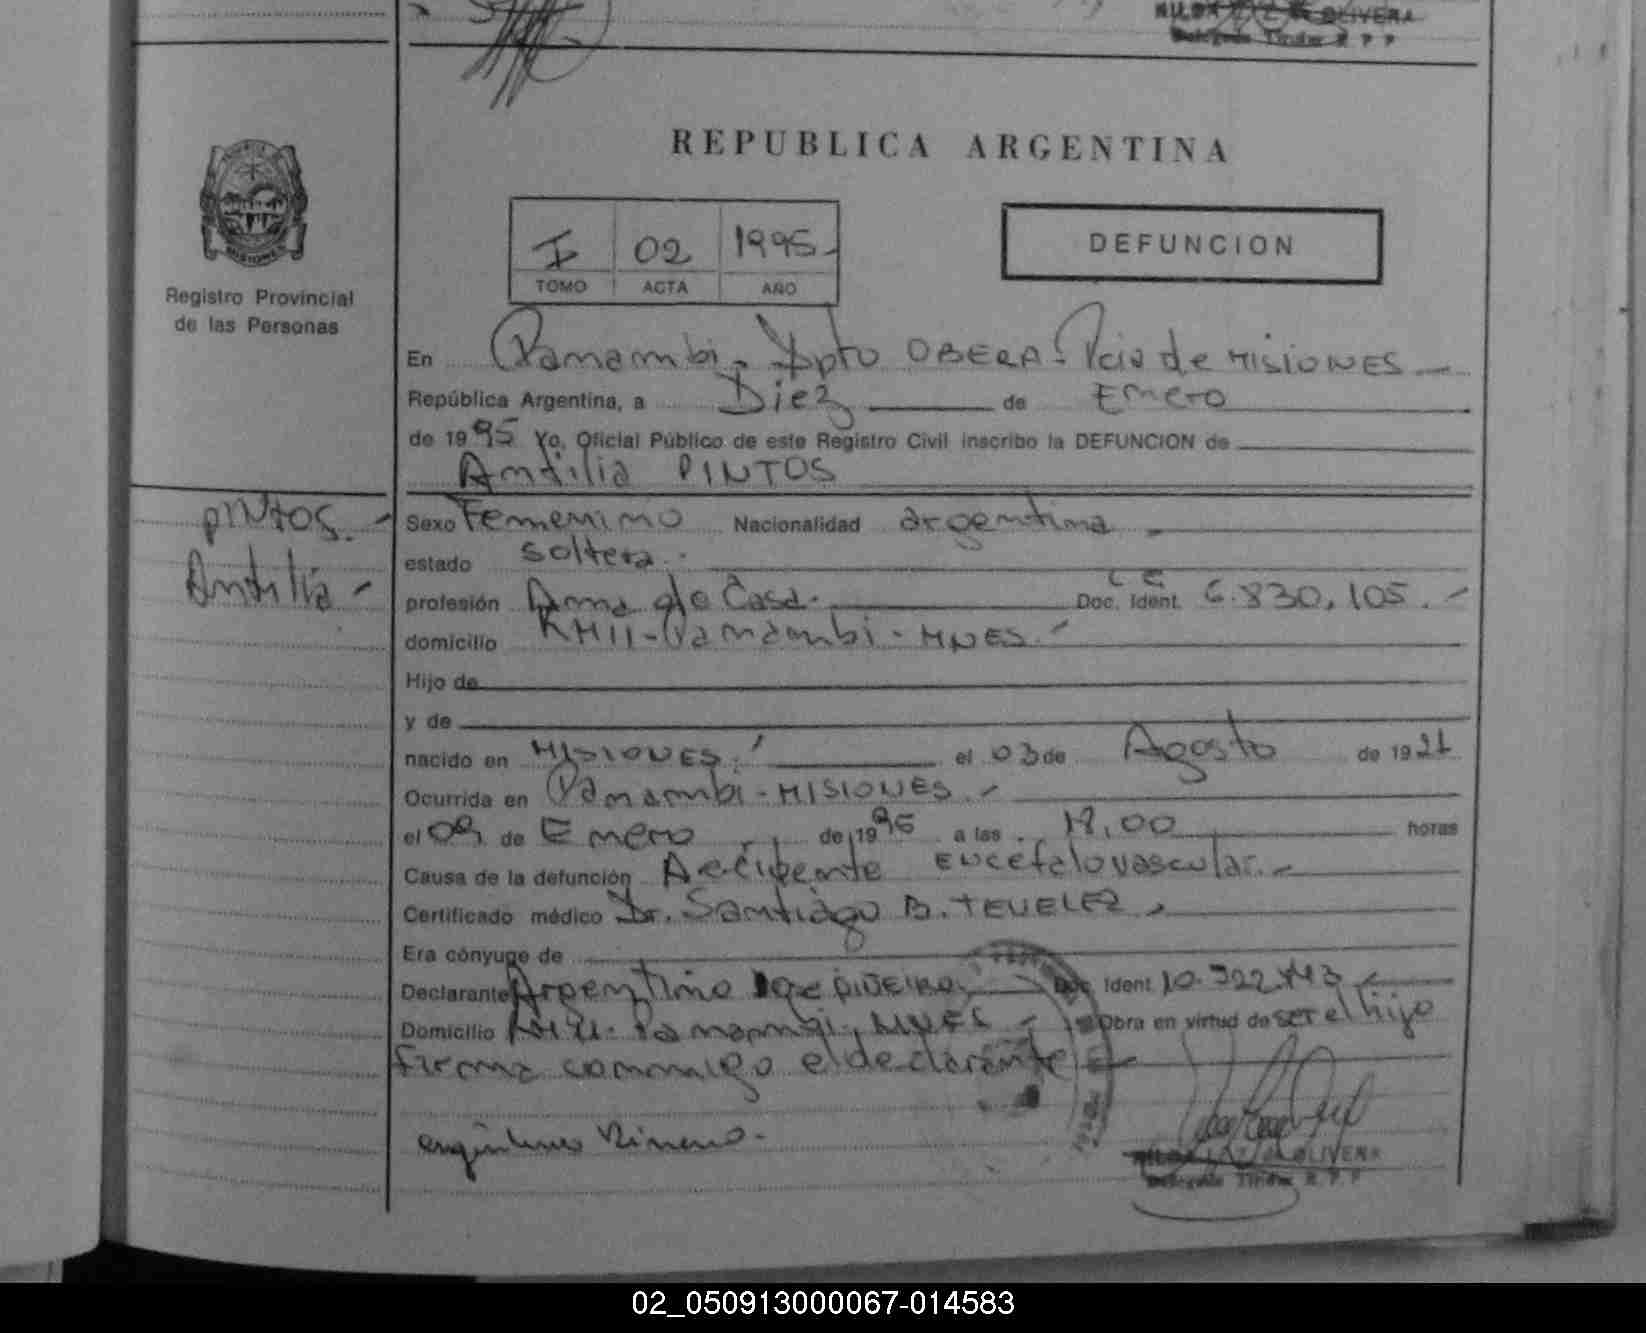 OLIVERA
Delegada Titular R P P
REPUBLICA ARGENTINA
I 02 1995-
TOMO ACTA AÑO
DEFUNCION
MISIONES
Registro Provincial
de las Personas
En Panambi - Dpto OBERA - Pcia de MISIONES
República Argentina, a Diez de Enero
de 1995 Yo, Oficial Público de este Registro Civil inscribo la DEFUNCION de
Antilia PINTOS
PINTOS.-
Antilia-
Sexo Femenino Nacionalidad argentina
estado soltera.
profesión Ama de Casa. Doc. Ident. L C 6.830,105.-
domicilio Panambi - MNES.-
Hijo de
y de
nacido en MISIONES.- el 03 de Agosto de 1921
Ocurrida en Panambi - MISIONES.-
el 09 de Enero de 1995 a las 18,00 horas
Causa de la defunción Accidente Encefalovascular.-
Certificado médico Dr. Santiago B. TEVELEZ
Era cónyuge de
Declarante Argentino PIÑEIRO. Doc. Ident.
Domicilio Panambi, MNES - Obra en virtud de ser el hijo
firma conmigo el declarante
OLIVERA
Delegada Titular R. P. P
02_050913000067-014583